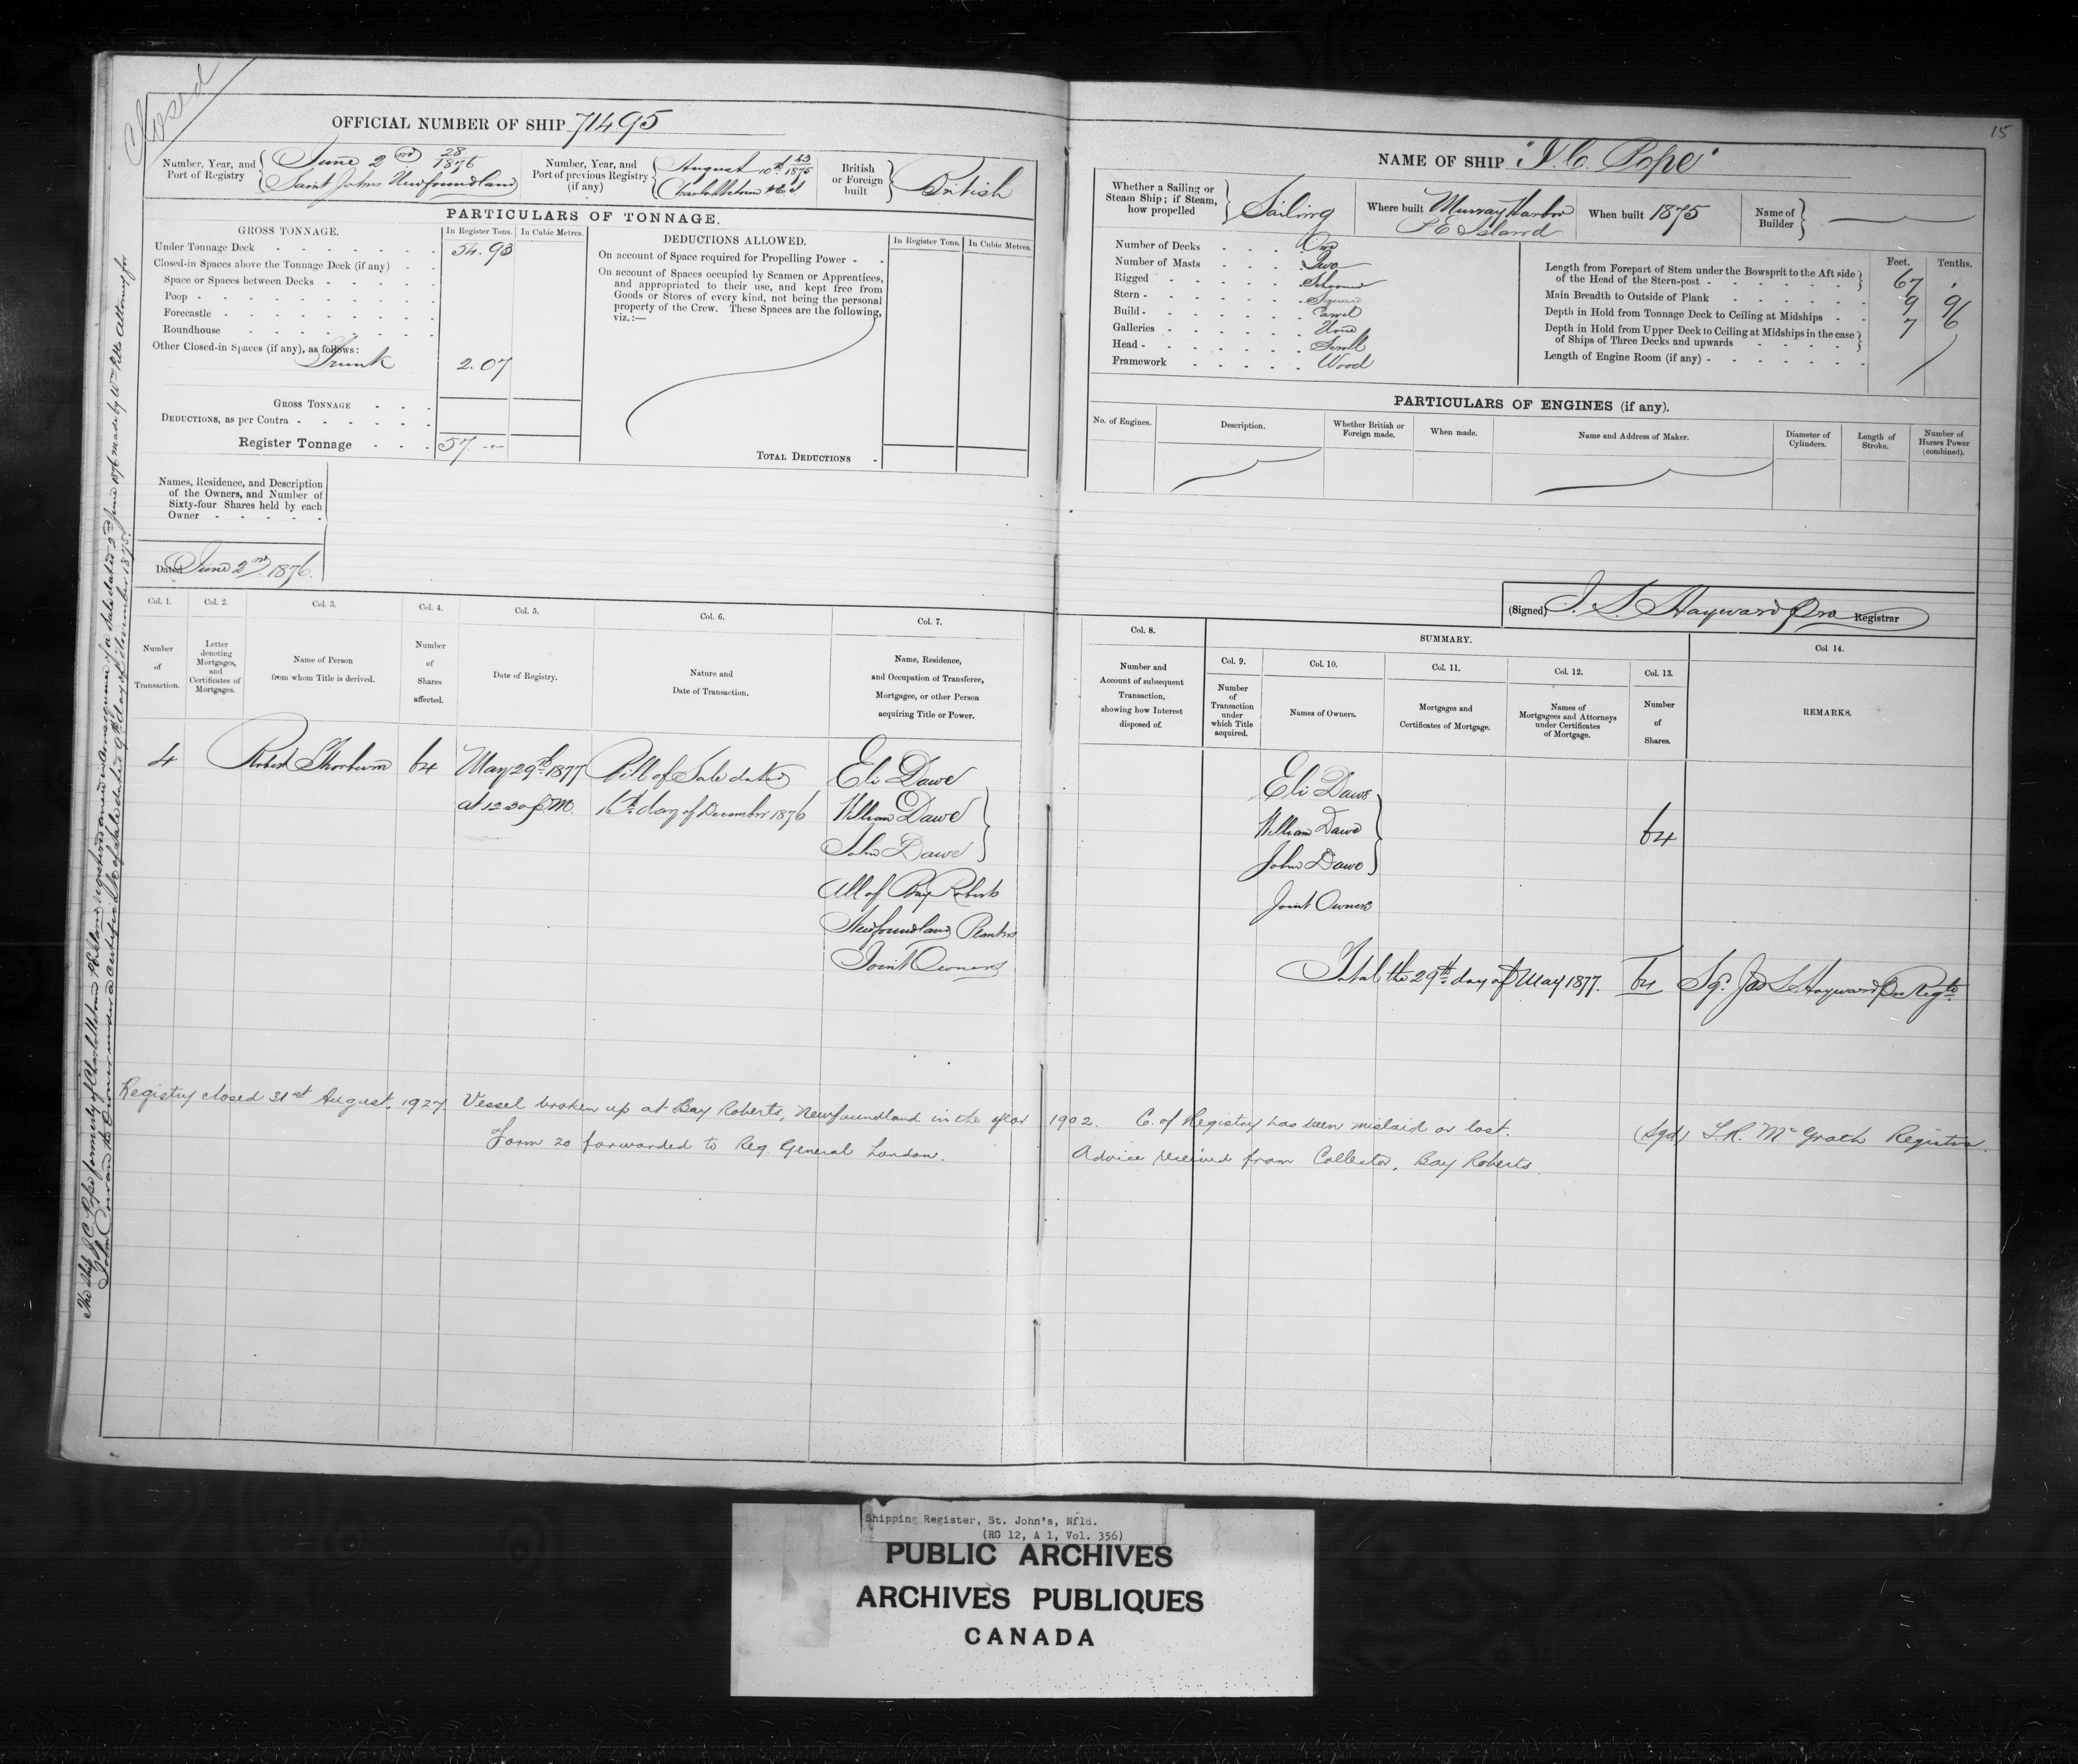 Closed
15
OFFICIAL NUMBER OF SHIP 71495
Number, Year, and Port of Registry
June 2nd 28 1876
Saint Johns Newfoundland
Number, Year, and Port of previous Registry (if any)
August 10th 43 1875
Charlottetown P E I
British or Foreign built
British
PARTICULARS OF TONNAGE.
GROSS TONNAGE.
In Register Tons.
In Cubic Metres.
Under Tonnage Deck 54.93
Closed-in Spaces above the Tonnage Deck (if any)
Space or Spaces between Decks
Poop
Forecastle
Roundhouse
Other Closed-in Spaces (if any), as follows:
Trunk 2.07
GROSS TONNAGE
DEDUCTIONS, as per Contra
Register Tonnage 57
DEDUCTIONS ALLOWED.
In Register Tons.
In Cubic Metres.
On account of Space required for Propelling Power
On account of Spaces occupied by Seamen or Apprentices,
and appropriated to their use, and kept free from
Goods or Stores of every kind, not being the personal
property of the Crew. These Spaces are the following,
viz.:—
TOTAL DEDUCTIONS
Names, Residence, and Description
of the Owners, and Number of
Sixty-four Shares held by each
Owner
Dated June 2nd 1876.
NAME OF SHIP "J. C. Pope"
Whether a Sailing or
Steam Ship; if Steam,
how propelled
Sailing
Where built Murray Harbor
P E Island
When built 1875
Name of
Builder
Number of Decks One
Number of Masts Two
Rigged Schooner
Stern Square
Build Carvel
Galleries None
Head Scroll
Framework Wood
Feet. Tenths.
Length from Forepart of Stem under the Bowsprit to the Aft side
of the Head of the Stern-post 67 .
Main Breadth to Outside of Plank 9 9
Depth in Hold from Tonnage Deck to Ceiling at Midships 7 6
Depth in Hold from Upper Deck to Ceiling at Midships in the case
of Ships of Three Decks and upwards
Length of Engine Room (if any)
PARTICULARS OF ENGINES (if any).
No. of Engines.
Description.
Whether British or Foreign made.
When made.
Name and Address of Maker.
Diameter of Cylinders.
Length of Stroke.
Number of Horses Power (combined).
(Signed) J. S. Hayward pro Registrar
Col. 1. Col. 2. Col. 3. Col. 4. Col. 5. Col. 6. Col. 7.
Number of Transaction.
Letter denoting Mortgages, and Certificates of Mortgages.
Name of Person from whom Title is derived.
Number of Shares affected.
Date of Registry.
Nature and Date of Transaction.
Name, Residence, and Occupation of Transferee, Mortgagee, or other Person acquiring Title or Power.
Col. 8.
Number and Account of subsequent Transaction, showing how Interest disposed of.
SUMMARY.
Col. 9. Col. 10. Col. 11. Col. 12. Col. 13.
Number of Transaction under which Title acquired.
Names of Owners.
Mortgages and Certificates of Mortgage.
Names of Mortgagees and Attorneys under Certificates of Mortgage.
Number of Shares.
Col 14.
REMARKS.
4 Robert Thorburn 64 May 29th 1877 Bill of Sale dated Eli Dawe
at 12 30 p.m. 16th day of December 1876 William Dawe
John Dawe
All of Bay Roberts
Newfoundland Planters
Joint Owners
Eli Dawe
William Dawe 64
John Dawe
Joint Owners
Total the 29th day of May 1877. 64 Sgd Jas S Hayward pro Regtr
Registry closed 31st August, 1927. Vessel broken up at Bay Roberts, Newfoundland in the year 1902. C. of Registry has been mislaid or lost. (Sgd) McGrath Registrar.
Form 20 forwarded to Reg. General London. Advice received from Collector, Bay Roberts.
The Ship J. C. Pope formerly of Charlottetown P E Island registered anew in consequence of a sale dated 2nd June 1876 made by Wm Pitts Attorney for
John Cowan the Owner under a certificate of Sale dated 9th day of November 1875.
Shipping Register, St. John's, Nfld.
(RG 12, A 1, Vol. 356)
PUBLIC ARCHIVES
ARCHIVES PUBLIQUES
CANADA